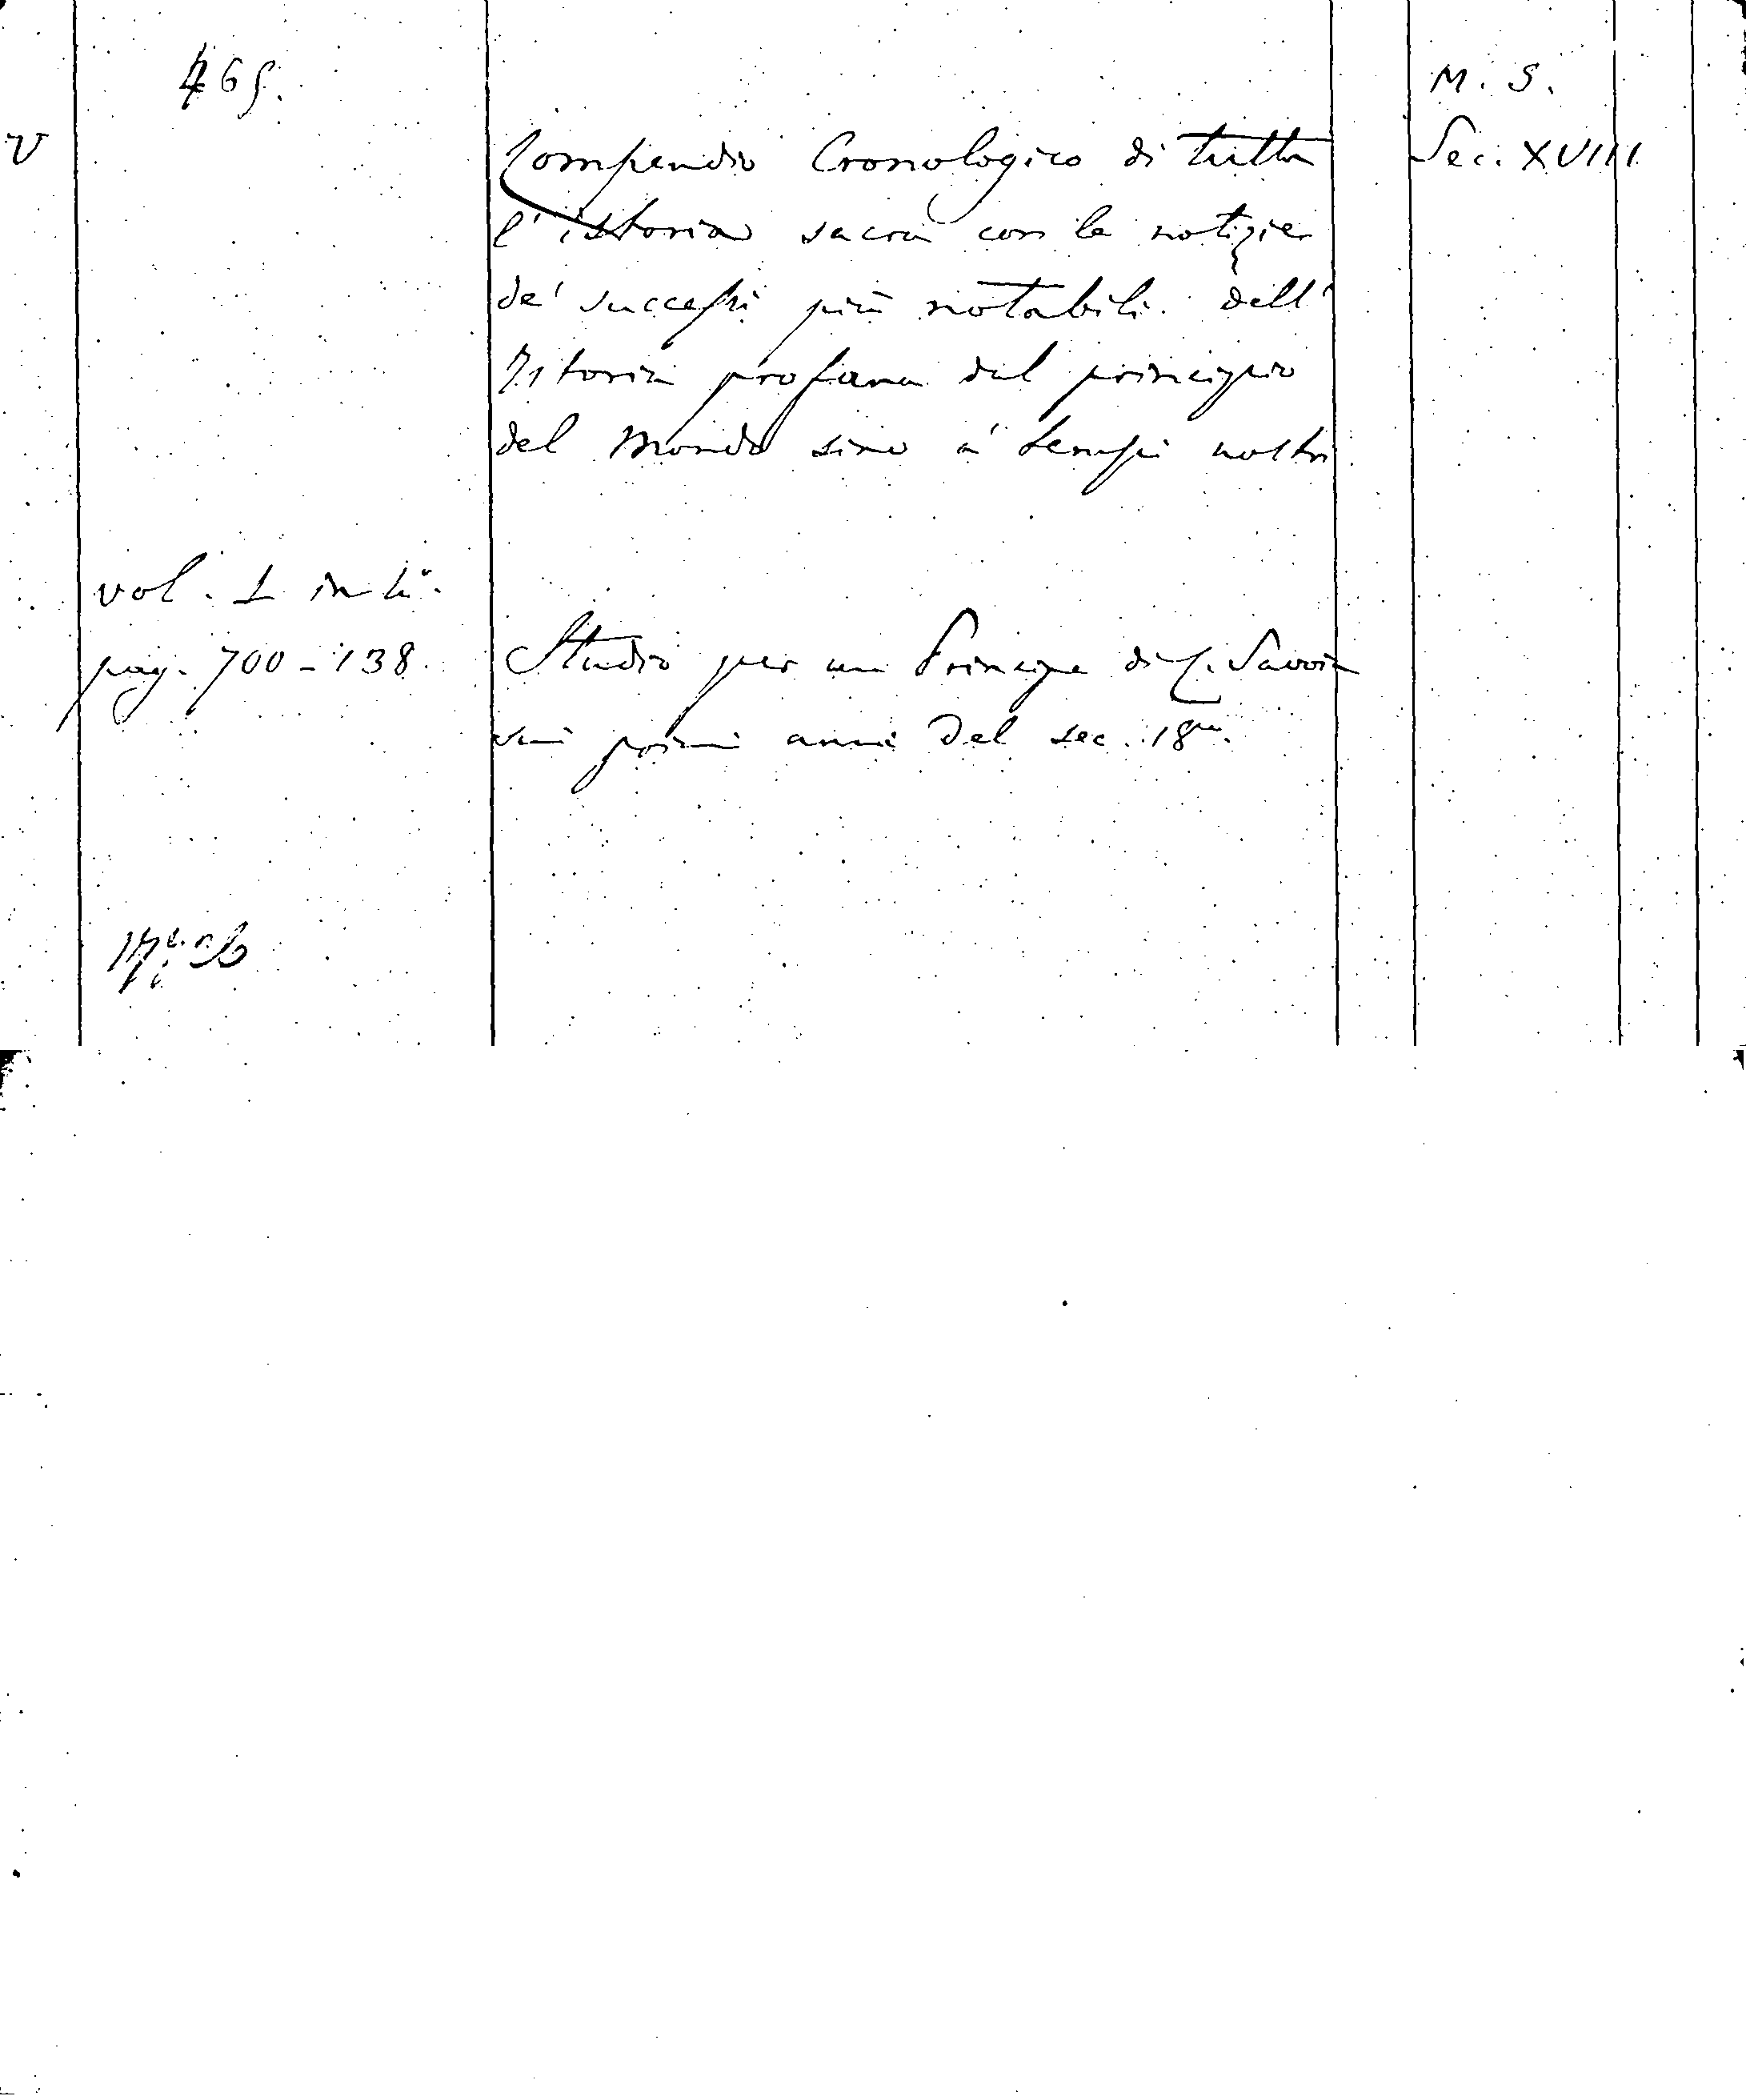 465.
M. S.
V
Compendio Cronologico di tutta
Sec. XVIII
l'istoria sacra con le notizie
de' successi più notabili dell'
Istoria profana dal principio
del Mondo sino a' tempi nostri
vol. 1 in 4°.
pag. 700-138.
Studio per un Principe di C. Savoia
nei primi anni del sec. 18mo.